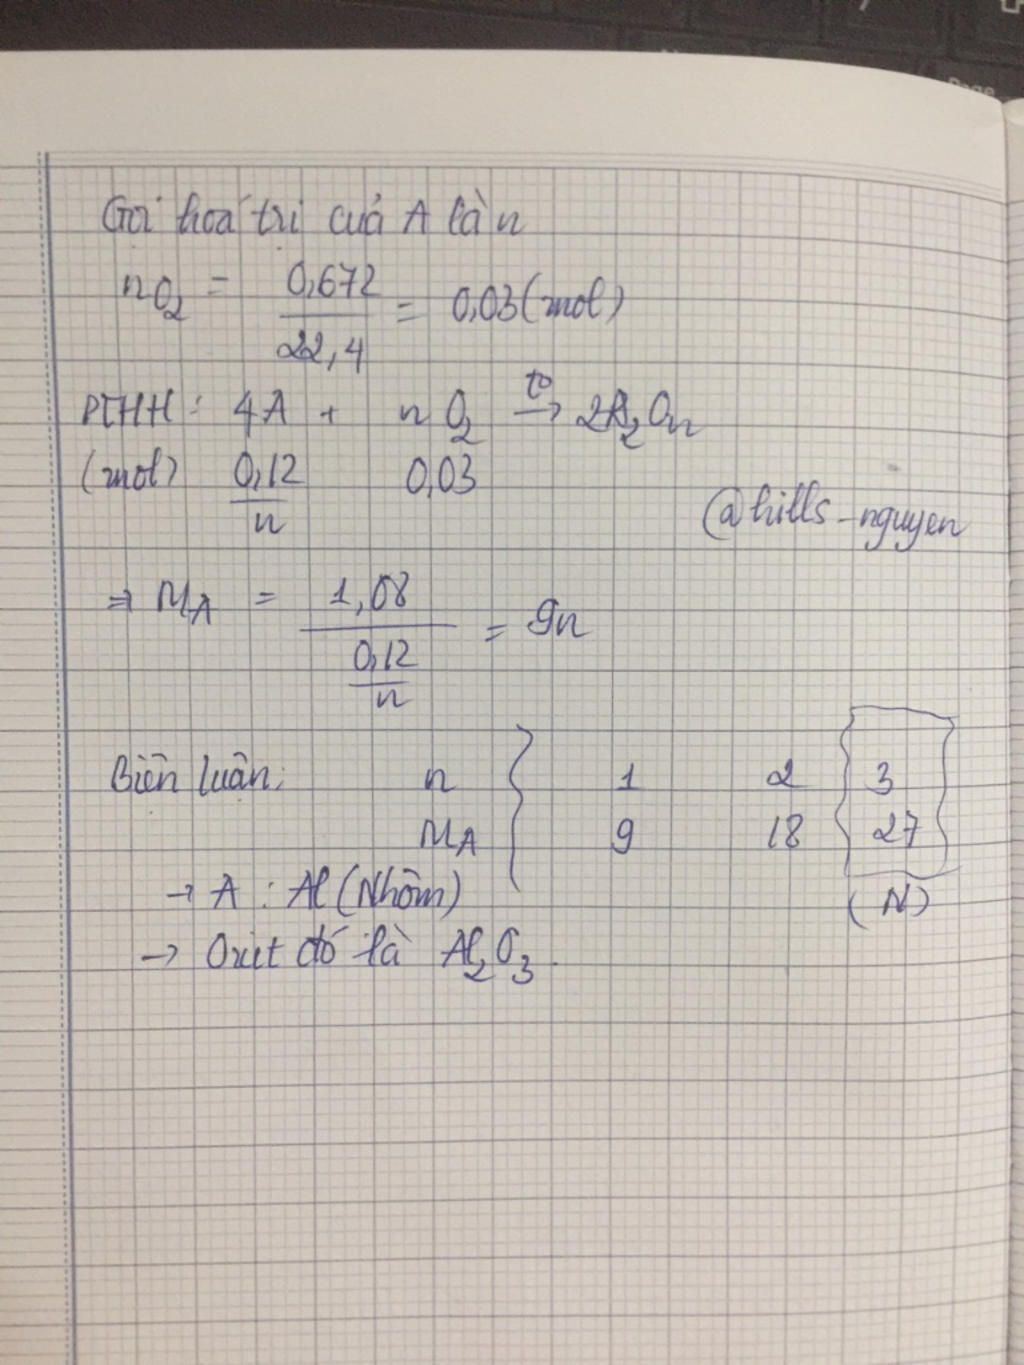 Gọi hoá trị của A là n
nO2 = 0,672 / 22,4 = 0,03 (mol)
PTHH: 4A + nO2 t° → 2A2On
(mol) 0,12/n 0,03
@hills_nguyen
⇒ MA = 1,08 / (0,12/n) = 9n
Biện luận: n { 1 2 3
MA 9 18 27
(N)
→ A : Al (Nhôm)
→ Oxit đó là Al2O3.